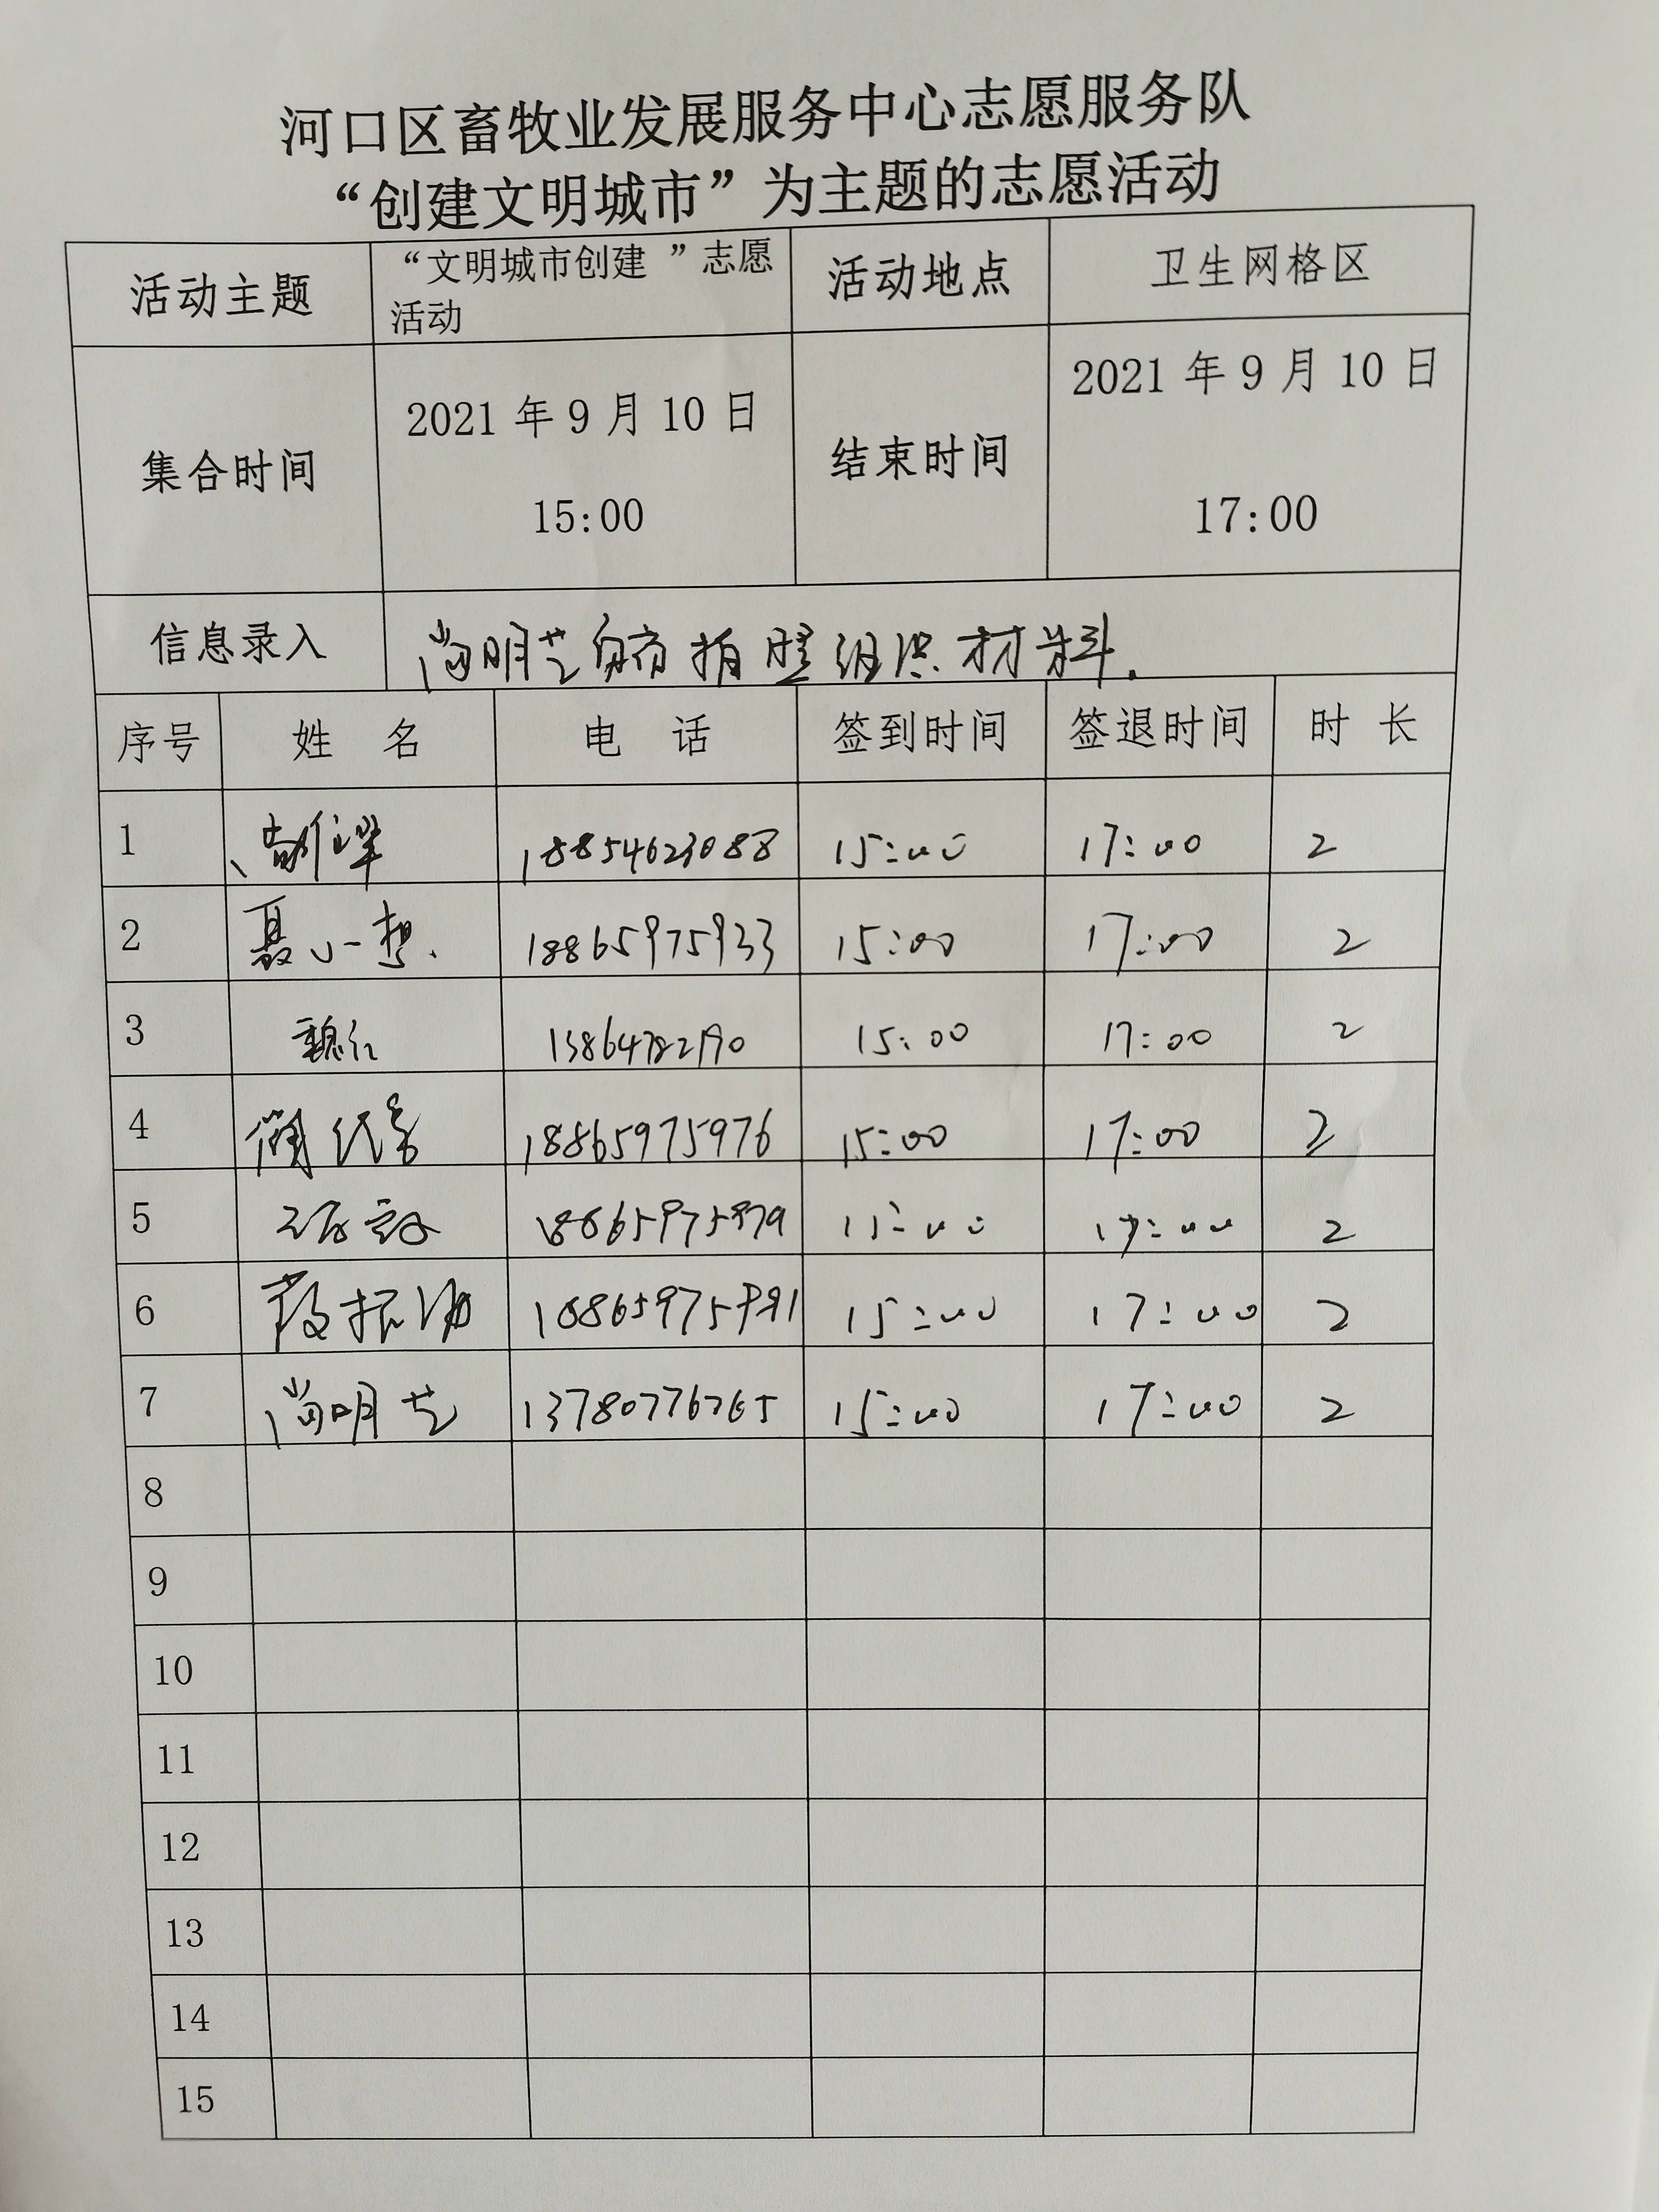 河口区畜牧业发展服务中心志愿服务队
“创建文明城市”为主题的志愿活动
活动主题 “文明城市创建 ”志愿 活动地点 卫生网格区
活动
集合时间 2021 年 9 月 10 日 结束时间 2021 年 9 月 10 日
15:00 17:00
信息录入 尚明芝 拍照组织材料.
序号 姓 名 电 话 签到时间 签退时间 时 长
1 18854623088 15:00 17:00 2
2 聂小想 18865975933 15:00 17:00 2
3 魏红 15:00 17:00 2
4 18865975976 15:00 17:00 2
5 15:00 17:00 2
6 薛振海 15:00 17:00 2
7 尚明芝 13780776765 15:00 17:00 2
8
9
10
11
12
13
14
15